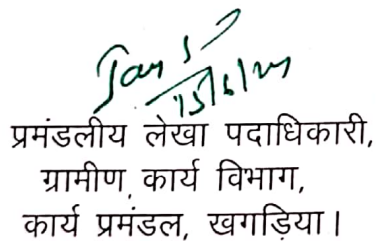 प्रमंडलीय लेखा पदाधिकारी,
ग्रामीण कार्य विभाग,
कार्य प्रमंडल, खगड़िया।